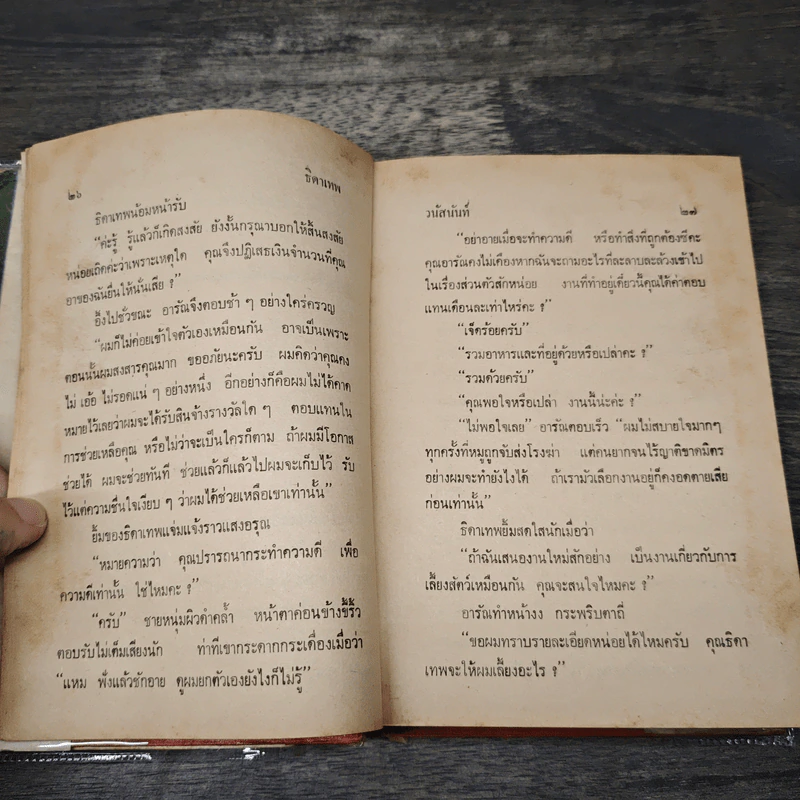 ๒๖
ธิดาเทพ
ธิดาเทพน้อมหน้ารับ
“ค่ะรู้ รู้แล้วก็เกิดสงสัย ยังงั้นกรุณาบอกให้สิ้นสงสัย
หน่อยเถิดค่ะว่าเพราะเหตุใด คุณจึงปฏิเสธเงินจำนวนที่คุณ
อาของฉันยื่นให้นั่นเสีย ?”
อึ้งไปชั่วขณะ อารัณจึงตอบช้า ๆ อย่างใคร่ครวญ
“ผมก็ไม่ค่อยเข้าใจตัวเองเหมือนกัน อาจเป็นเพราะ
ตอนนั้นผมสงสารคุณมาก ขออภัยนะครับ ผมคิดว่าคุณคง
ไม่ เอ้อ ไม่รอดแน่ ๆ อย่างหนึ่ง อีกอย่างก็คือผมไม่ได้คาด
หมายไว้เลยว่าผมจะได้รับสินจ้างรางวัลใด ๆ ตอบแทนใน
การช่วยเหลือคุณ หรือไม่ว่าจะเป็นใครก็ตาม ถ้าผมมีโอกาส
ช่วยได้ ผมจะช่วยทันที ช่วยแล้วก็แล้วไปผมจะเก็บไว้ รับ
ไว้แต่ความชื่นใจเงียบ ๆ ว่าผมได้ช่วยเหลือเขาเท่านั้น”
ยิ้มของธิดาเทพแจ่มแจ้งราวแสงอรุณ
“หมายความว่า คุณปรารถนากระทำความดี เพื่อ
ความดีเท่านั้น ใช่ไหมคะ ?”
“ครับ” ชายหนุ่มผิวดำคล้ำ หน้าตาค่อนข้างขี้ริ้ว
ตอบรับไม่เต็มเสียงนัก ท่าทีเขากระดากกระเดื่องเมื่อว่า
“แหม ฟังแล้วชักอาย ดูผมยกตัวเองยังไงก็ไม่รู้”
วนัสนันท์
๒๗
“อย่าอายเมื่อจะทำความดี หรือทำสิ่งที่ถูกต้องซีคะ
คุณอารัณคงไม่เคืองหากฉันจะถามอะไรที่ละลาบละล้วงเข้าไป
ในเรื่องส่วนตัวสักหน่อย งานที่ทำอยู่เดี๋ยวนี้คุณได้ค่าตอบ
แทนเดือนละเท่าไหร่คะ ?”
“เจ็ดร้อยครับ”
“รวมอาหารและที่อยู่ด้วยหรือเปล่าคะ ?”
“รวมด้วยครับ”
“คุณพอใจหรือเปล่า งานนี้น่ะค่ะ ?”
“ไม่พอใจเลย” อารัณตอบเร็ว “ผมไม่สบายใจมากๆ
ทุกครั้งที่หมูถูกจับส่งโรงฆ่า แต่คนยากจนไร้ญาติขาดมิตร
อย่างผมจะทำยังไงได้ ถ้าเรามัวเลือกงานอยู่ก็คงอดตายเสีย
ก่อนเท่านั้น”
ธิดาเทพยิ้มสดใสนักเมื่อว่า
“ถ้าฉันเสนองานใหม่สักอย่าง เป็นงานเกี่ยวกับการ
เลี้ยงสัตว์เหมือนกัน คุณจะสนใจไหมคะ ?”
อารัณทำหน้างง กระพริบตาถี่
“ขอผมทราบรายละเอียดหน่อยได้ไหมครับ คุณธิดา
เทพจะให้ผมเลี้ยงอะไร ?”